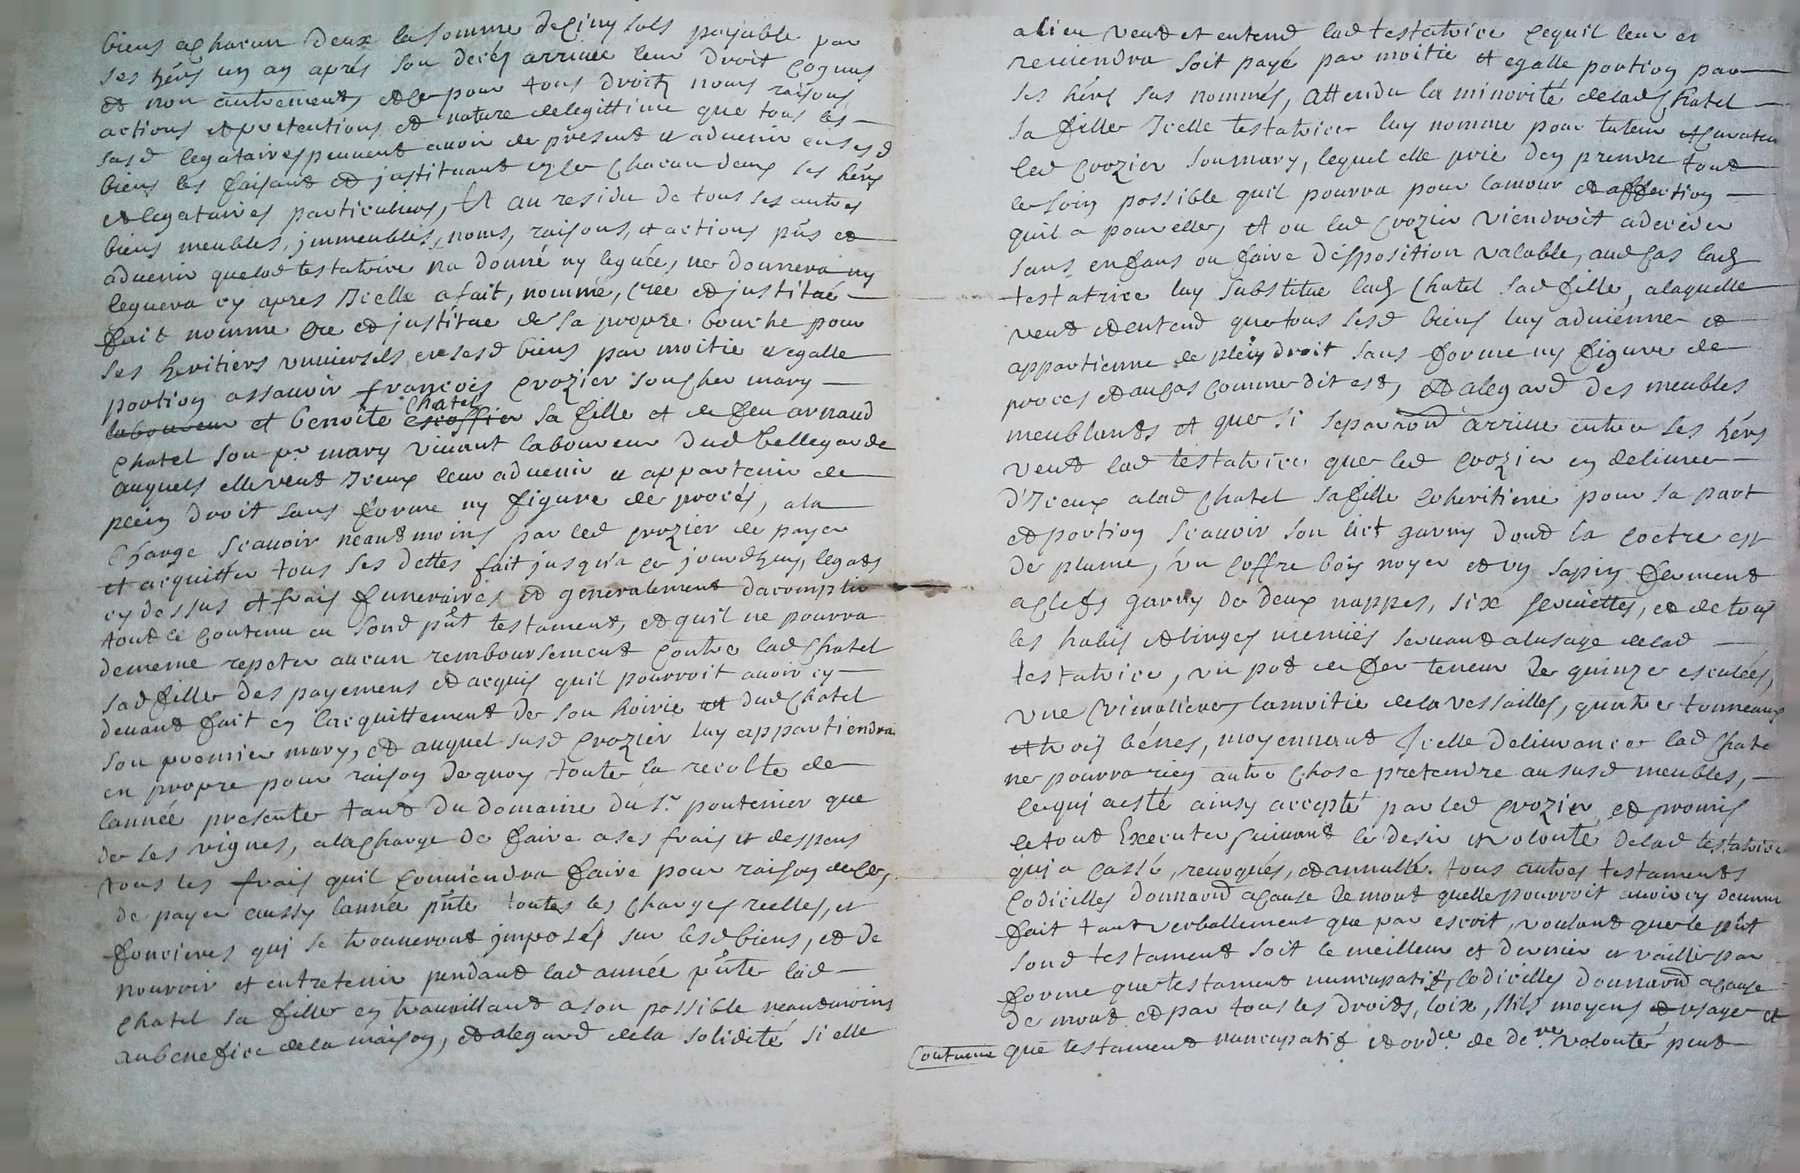 biens a chacun deux la somme de cinq sols payable par
ses hérs un an aprés son decés arrivée leur droit cognus
et non autrement, et ce pour tous droitz noms raisons
actions et pretentions et nature de legittime que tous les
susd legataires peuvent avoir de présent et advenir en sesd
biens les faisant et jnstituant en ce chacun deux ses hérs
et legataires particuliers, Et au residu de tous ses autres
biens meubles, jmmeubles, noms, raisons, et actions pñs et
advenir que lad testatrice na donné ny legué, ne donnera ny
leguera cy apres Jcelle a fait, nommé, créé et jnstitué
fait nomme cre et jnstitue de sa propre bouche pour
ses heritiers universels en sesd biens par moitie et egalle
portion assavoir françois Crozier son cher mary
laboureur et benoite escoffier Chatel sa fille et de feu arnaud
Chatel son pr mary vivant laboureur dud bellegarde
auquels elle veut Jceux leur advenir et appartenir de
plein droit sans forme ny figure de procés, a la
Charge scavoir neantmoins par led Crozier de payer
et acquitter tous ses dettes fait jusqu'a ce jourdhuy, legats
cy dessus et frais funeraires et generalement dacomplir
tout le contenu en sond pñt testament, et quil ne pourra
dememe repeter aucun remboursement contre lad Chatel
sad fille des payemens et acquis quil pourroit avoir cy
devant fait en lacquittement de son hoirie et dud Chatel
son premier mary, et auquel susd Crozier luy appartiendra
en propre pour raison de quoy toute la recolte de
lannée presente tant du domaine du Sr pontenier que
de ses vignes, a la charge de faire a ses frais et despens
tous les frais quil conviendra faire pour raison de ce,
de payer aussy lannée pñte toutes les charges reelles, et
foncieres qui se trouveront jmposés sur lesd biens, et de
nourrir et entretenir pendant lad année pñte lad
Chatel sa fille en travaillant a son possible neantmoins
au benefice de la maison, et a legard de la solidité si elle
a lieu veut et entend lad testatrice ce quil leur en
reviendra soit payé par moitie et egalle portion par
ses hérs sus nommés, attendu la minorité de lad Chatel
sa fille Jcelle testatrice luy nomme pour tuteur et Curateur
led Crozier son mary, lequel elle prie den prendre tout
le soin possible quil pourra pour lamour et affection
quil a pour elle, et ou lad Crozier viendroit a deceder
sans enfans ou faire disposition valable, aud cas lad
testatrice luy substitue lad Chatel sad fille, a laquelle
veut et entend que tous sesd biens luy advienne et
appartienne de plein droit sans forme ny figure de
proces et au cas comme dit est, et a legard des meubles
meublants et que si separaon arrive entre ses hérs
veut lad testatrice que led Crozier en delivre
d'Jceux a lad Chatel sa fille coheritiere pour sa part
et portion scavoir son lict garny dont la coetre est
de plume, un coffre bois noyer et un sapin ferment
a clefs garny de deux nappes, six serviettes, et de tous
les habis et linges meniés servant a lusage de lad
testatrice, un pot de fer teneur de quinze esculés,
une Crimaliere, la moitie de la vessailles, quatre tonneaux
et trois bénes, moyennant Jcelle delivrance lad Chate
ne pourra rien autre chose pretendre au susd meubles,
ce qui a esté ainsy accepté par led Crozier, et promis
le tout Executer suivant le desir et volonté de lad testatrice
qui a cassé, revoqués, et annullé tous autres testaments
Codicilles donnaon a cause de mort quelle pourroit avoir cy devant
fait tant verballement que par escrit, voulant que le pñt
sond testament soit le meilleur et dernier et vaille par
forme que testament nuncupatif, codicilles donnaon a cause
de mort et par tous les droits, loix, stils moyens et usage et
Coutume que testament nuncupatif et ordce de dre volonté peut